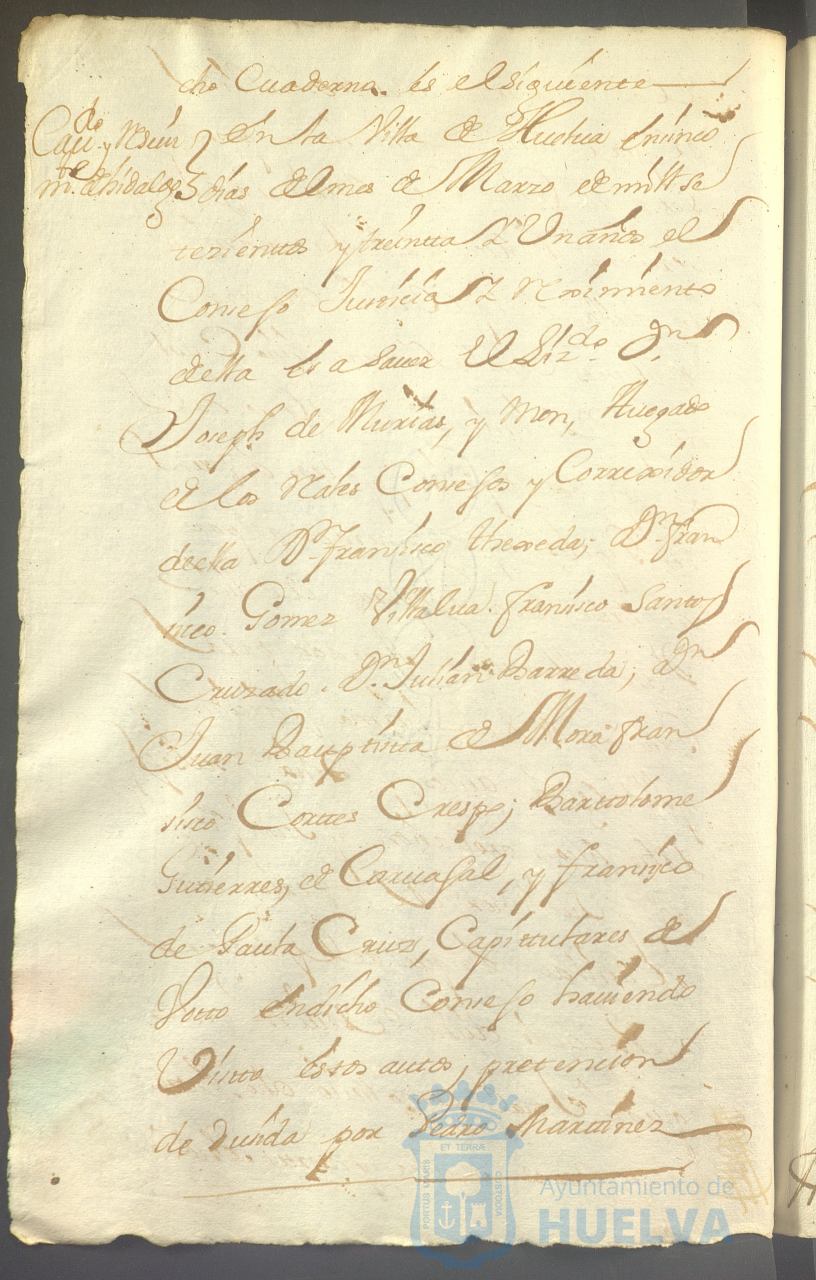 cho Cuaderna. es el siguiente
Cav.do y Resiui
m.to de hidalgo
En la Villa de Huelua en cinco
dias del mes de Marzo de mill se
tezientos y treintta Y Un años el
Conseso Justicia Y Reximiento
della es a Sauer El Liz.do D.n
Joseph de Murias, y Mon, Auogado
de los R.ales Consejos y Correxidor
della D.n Fransisco thexeda; D.n Fran
sisco Gomez Villalua. Fransisco Santos
Cruzado. D.n Julian Barreda; D.n
Juan Bauptista de Mora fran
sisco Corttes Crespo; Barttolome
Gutierres, de Caruajal, y fransisco
de Paula Cruz, Capittulares de
Votto en dicho Consejo hauiendo
Vistto esttos autos, pretencion
de dusida por Pedro Martinez
Ayuntamiento de
HUELVA
PORTUS MARIS
ET TERRÆ
CUSTODIA